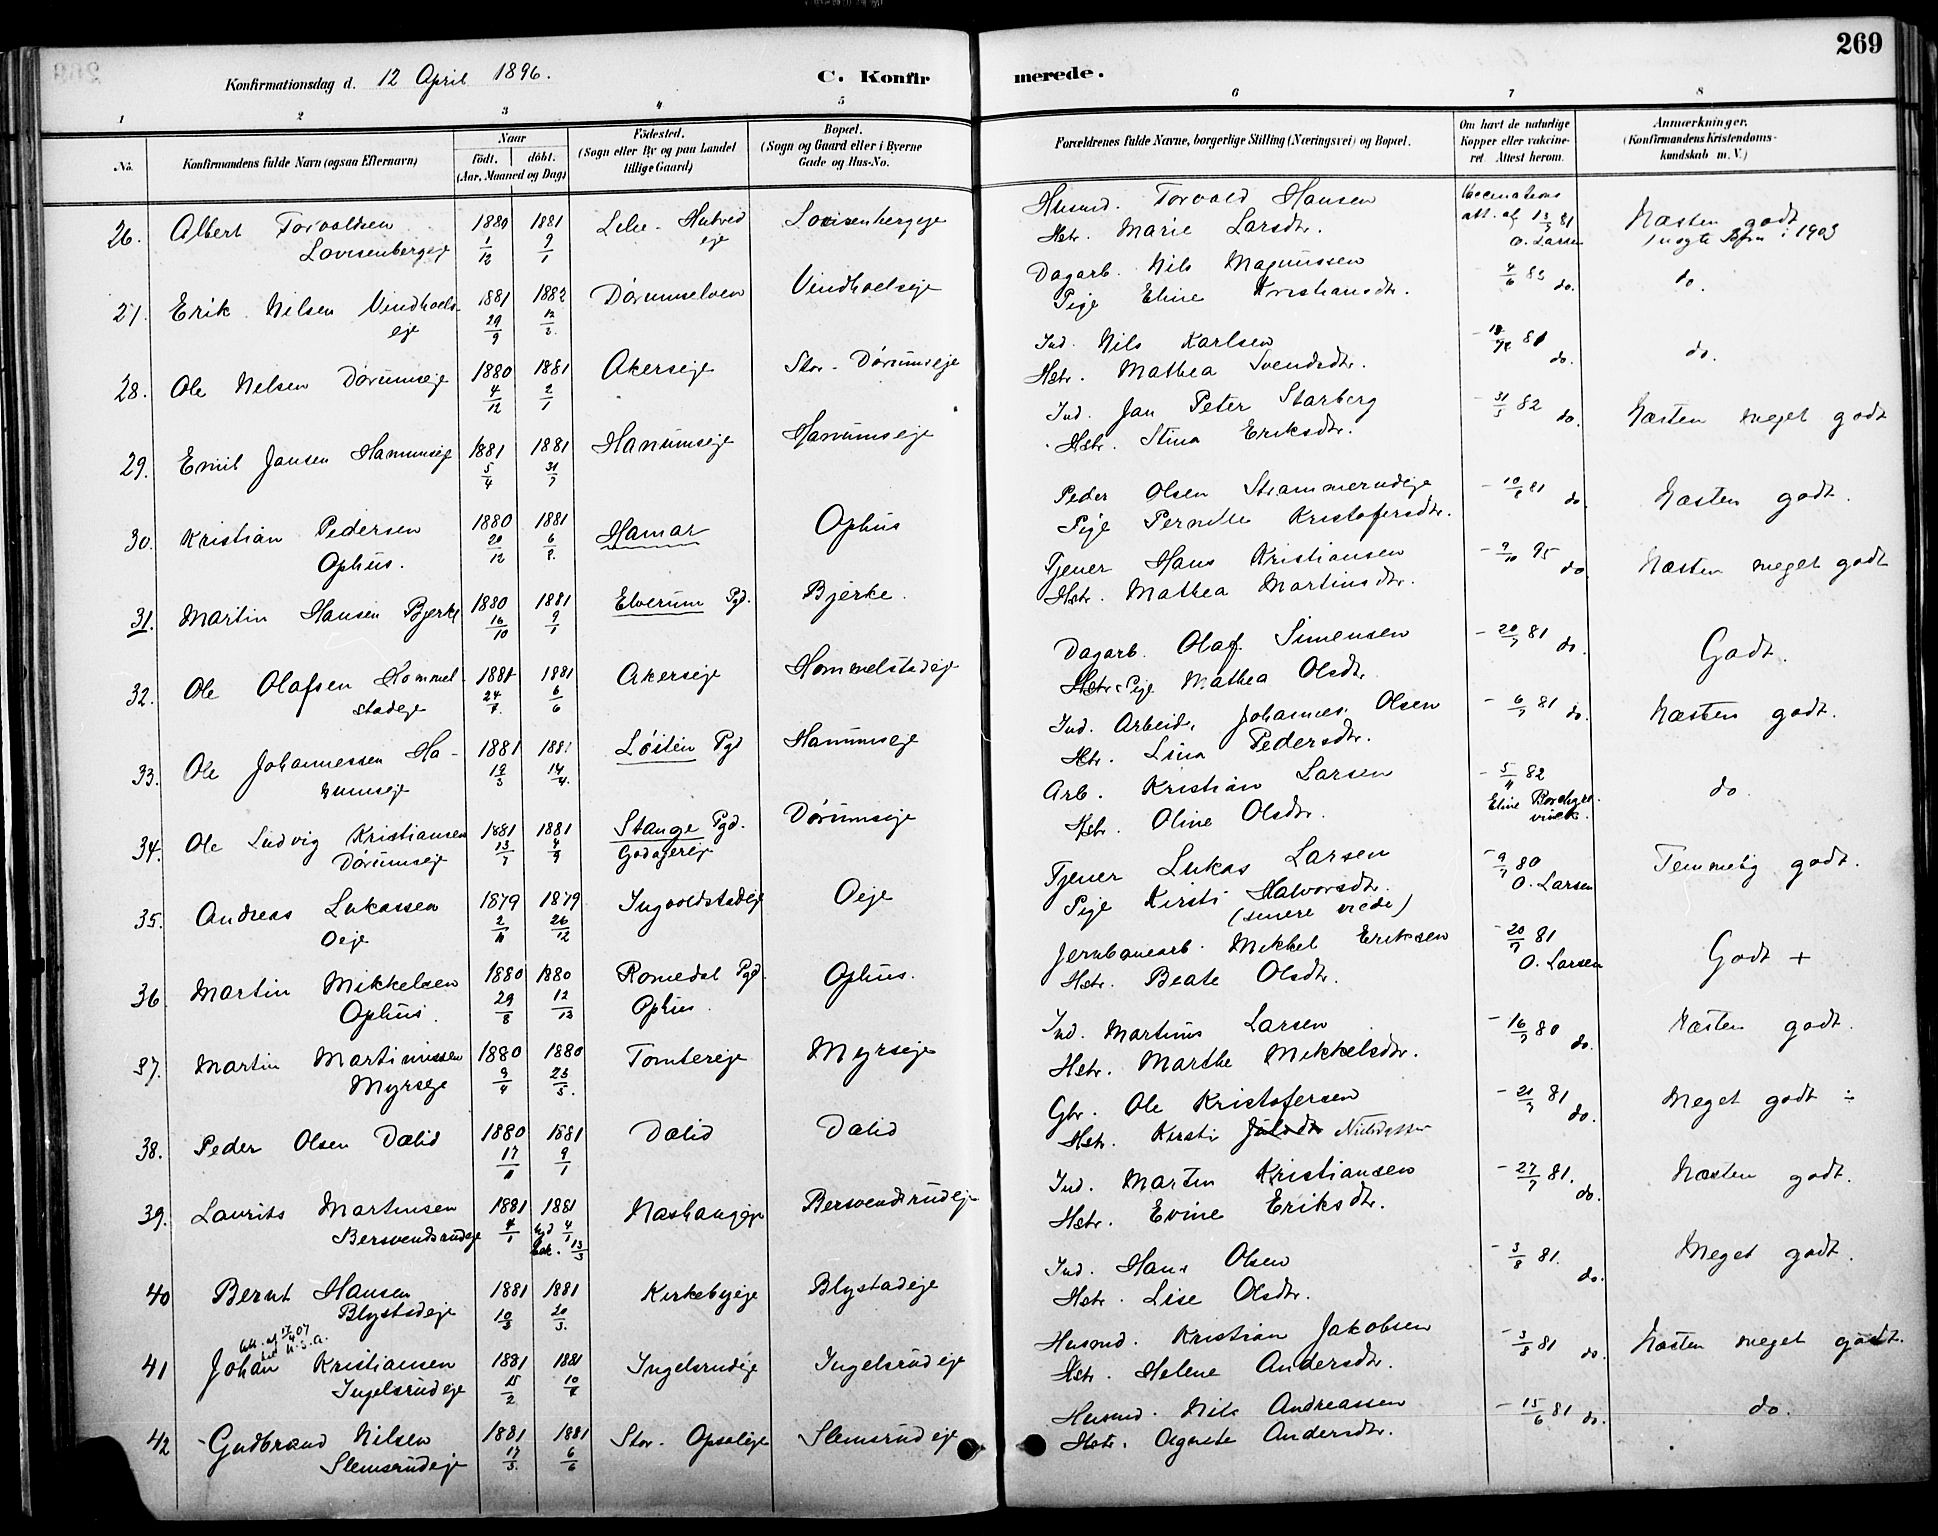 269
Konfirmationsdag d. 12 April 1896. C. Konfirmerede.
1 2 3 4 5 6 7 8
No. Konfirmandens fulde Navn (ogsaa Efternavn) Naar födt. döbt. (Aar, Maaned og Dag) Födested. (Sogn eller By og paa Landet tillige Gaard) Bopæl. (Sogn og Gaard eller i Byerne Gade og Hus-No. Forældrenes fulde Navne, borgerlige Stilling (Næringsvei) og Bopæl. Om havt de naturlige Kopper eller vakcineret. Attest herom. Anmærkninger. (Konfirmandens Kristendomskundskab m. V.)
26. Albert Torvaldsen 1880 1881 Lille Hubred Lovisenbergeje Husmd. Torvald Hansen Vaccinations Næsten godt
Lovisenbergeje 1/12 9/1 eje Hstr. Marie Larsdtr. att. af 13/7 81 O. Larsen i 1903
27. Erik Nilsen Vindhols- 1881 1882 Dørumselven Vindholseje Dagarb. Nils Magnussen 4/6 83 do. do.
eje 29/9 12/2 Pige Eline Kristiansdtr.
28. Ole Nilsen Dørumseje 1880 1881 Akerseje Stor-Dørumseje Ind. Nils Karlsen 81 do. do.
4/12 2/1 Hstr. Mathea Svendsdtr.
29. Emil Jansen Hanumseje 1881 1881 Hanumseje Hanumseje Ind. Jan Peter Starberg 31/5 82 do. Næsten meget godt
5/4 31/7 Hstr. Stina Eriksdtr.
30. Kristian Pedersen 1880 1881 Hamar Ophus Peder Olsen Strammerudeje 10/8 81 do. Næsten godt.
Ophus. 20/12 6/8. Pige Pernille Kristofersdtr.
31. Martin Hansen Bjerke 1880 1881 Elverum Pgd. Bjerke. Tjener Hans Kristiansen 9/10 95 do. Næsten meget godt
16/10 9/1 Hstr. Mathea Martinsdtr.
32. Ole Olafsen Hommel- 1881 1881 Akerseje Hommelstadeje Dagarb. Olaf Simensen 20/7 81 do. Godt.
stadeje 24/7. 6/6 Hstr. Pige Mathea Olsdtr.
33. Ole Johannessen Ha- 1881 1881 Løiten Pgd Hanumseje Ind. Arbeidr. Johannes Olsen 6/7 81 do. Næsten godt.
numseje 19/3 14/4. Hstr. Lina Pedersdtr.
34. Ole Ludvig Kristiansen 1881 1881 Stange Pgd. Dørumseje Arb. Kristian Larsen 5/4 82 do.
Dørumseje 13/7 4/9 Godagereje Hstr. Oline Olsdtr. Eline Borchgrevink.
35. Andreas Lukassen 1879 1879 Ingvoldstadeje Oeje Tjener Lukas Larsen 9/7 80 Temmelig godt.
Oeje 2/11 26/12 Pige Kirsti Halvorsdtr. (senere viede) O. Larsen
36. Martin Mikkelsen 1880 1880 Romedal Pgd. Ophus. Jernbanearb. Mikkel Eriksen 20/7 81 Godt +
Ophus. 29/8 12/12 Ophus. Hstr. Beate Olsdtr. O. Larsen
37. Martin Martinussen 1880 1880 Tomtereje Myrseje Ind. Martinus Larsen 16/7 80 do. Næsten godt.
Myrseje 9/4 23/5. Hstr. Marthe Mikkelsdtr.
38. Peder Olsen Dælid 1880 1881 Dælid Dælid Gbr. Ole Kristofersen 20/7 81 do. Meget godt ÷
17/11 9/1 Hstr. Kirsti
39. Laurits Martinsen 1881 1881 Næshaugeje Bersvendsrudeje Ind. Martin Kristiansen 27/7 81. do. Næsten godt.
Bersvendsrudeje 4/1 hjd 4/1 bek. 13/3 Hstr. Evine Eriksdtr.
40 Bernt Hansen 1881 1881 Kirkebyeje Blystadeje Ind. Hans Olsen 3/8 81. do. Meget godt.
Blystadeje 10/3 20/3. Hstr. Lise Olsdtr.
att. af 17/4 07 U.S.A.
41 Johan Kristiansen 1881 1881 Ingelsrudeje Ingelsrudeje Husmd. Kristian Jakobsen 3/8 81 do. Næsten meget godt.
Ingelsrudeje 15/2 10/4 Hstr. Helene Andersdtr.
42 Gudbrand Nilsen 1881 1881 Stor-Opsaleje Slemsrudeje Husmd. Nils Andreassen 15/6 81 do. do.
Slemsrudeje 17/3. 6/6 Hstr. Agnete Andersdtr.